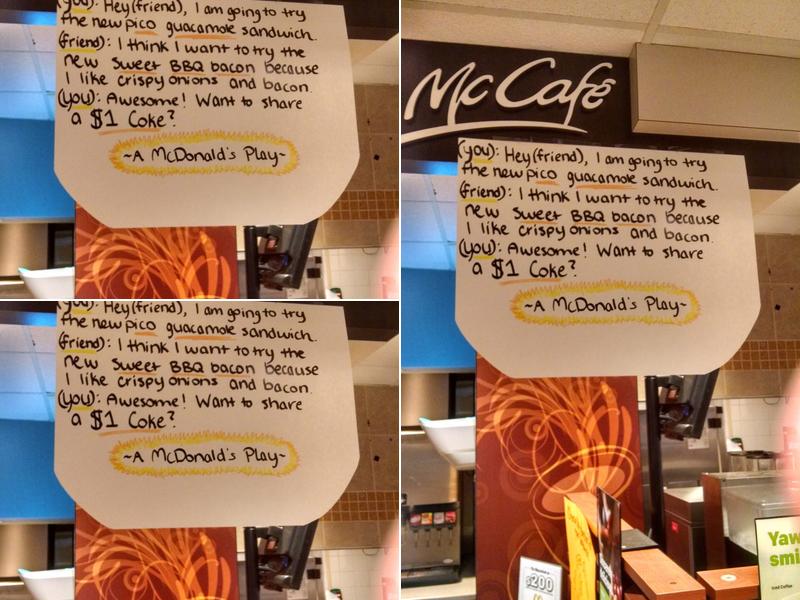 (you): Hey(friend), I am going to try
the new pico guacamole sandwich.
(friend): I think I want to try the
new Sweet BBQ bacon because
I like crispy onions and bacon.
(you): Awesome! Want to share
a $1 Coke?
~A McDonald's Play~
McCafé
(you): Hey(friend), I am going to try
the new pico guacamole sandwich.
(friend): I think I want to try the
new Sweet BBQ bacon because
I like crispy onions and bacon.
(you): Awesome! Want to share
a $1 Coke?
~A McDonald's Play~
$200
Yaw
smi
Iced Coffee
(you): Hey(friend), I am going to try
the new pico guacamole sandwich.
(friend): I think I want to try the
new Sweet BBQ bacon because
I like crispy onions and bacon.
(you): Awesome! Want to share
a $1 Coke?
~A McDonald's Play~